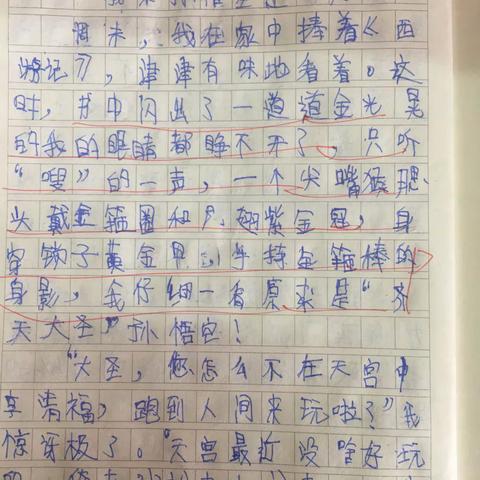 周末，我在家中捧着《西
游记》，津津有味地看着。这
时，书中闪出了一道道金光 晃
的我的眼睛都睁不开了，只听
“嗖”的一声，一个尖嘴猴腮
头戴金箍圈和 翅紫金冠，身
穿锁子黄金 手持金箍棒的
身影，我仔细一看原来是“齐
天大圣”孙悟空！
“大圣，您怎么不在天宫中
享清福，跑到人间来玩啦？”我
惊讶极了。“天宫最近没啥好玩